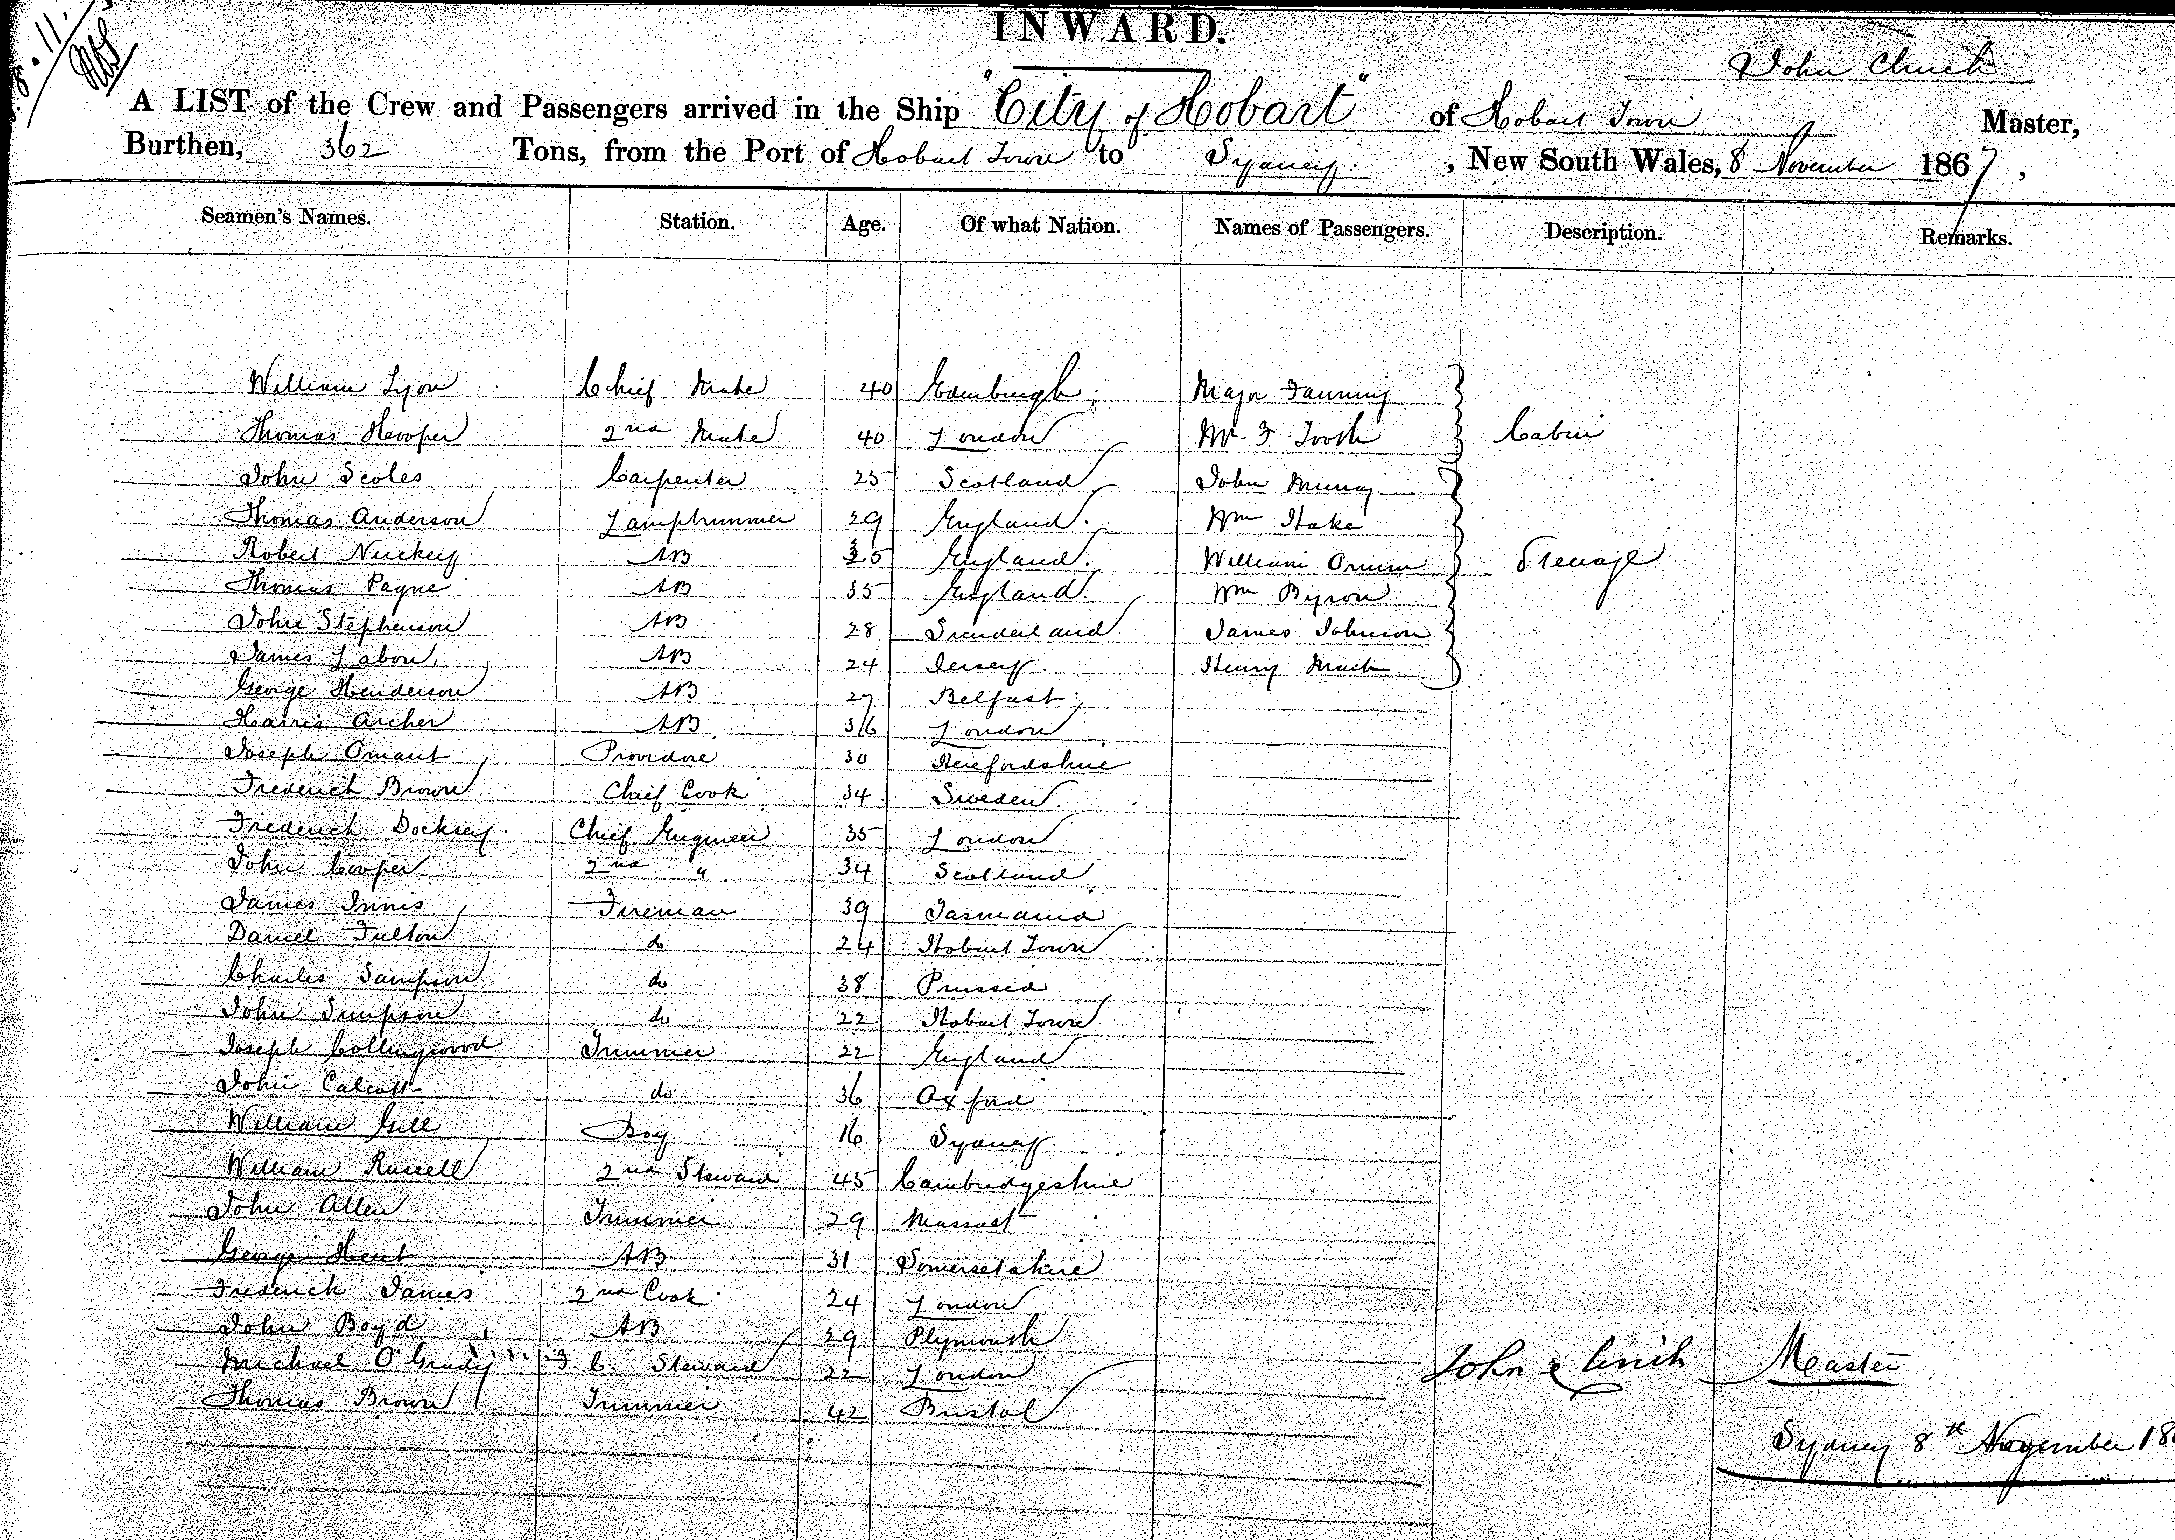 INWARD.
John Clinch
A LIST of the Crew and Passengers arrived in the Ship "City of Hobart" of Hobart Town Master,
Burthen, 362 Tons, from the Port of Hobart Town to Sydney, New South Wales, 8 November 1867,
Seamen's Names. Station. Age. Of what Nation. Names of Passengers. Description. Remarks.
William Lyon Chief Mate 40 Edinburgh Major Fanning
Thomas Hooper 2nd Mate 40 London Mr F Tooth Cabin
John Scoles Carpenter 25 Scotland John Murray
Thomas Anderson Lamptrimmer 29 England Wm Hake
Robert AB 35 England William Steerage
Thomas Payne AB 35 England Wm Byron
John Stephenson AB 28 Sunderland James Johnson
James Labon AB 24 Jersey Henry
George Henderson AB 27 Belfast
Harris Archer AB 36 London
Joseph Omant Providore 30 Herefordshire
Frederick Brown Chief Cook 34 Sweden
Frederick Docksey Chief Engineer 35 London
John Cooper 2nd " 34 Scotland
James Innis Fireman 39 Tasmania
Daniel Fulton do 24 Hobart Town
Charles Sampson do 38 Prussia
John Simpson do 22 Hobart Town
Joseph Collingwood Trimmer 22 England
John Calcott do 36 Oxford
William Gill Boy 16 Sydney
William Russell 2nd Steward 45 Cambridgeshire
John Allen Trimmer 29
George Hent AB 31 Somersetshire
Frederick James 2nd Cook 24 London
John Boyd AB 29 Plymouth
Michael O'Grady F C Steward 22 London
Thomas Brown Trimmer 42 Bristol
John Clinch Master
Sydney 8th November 18